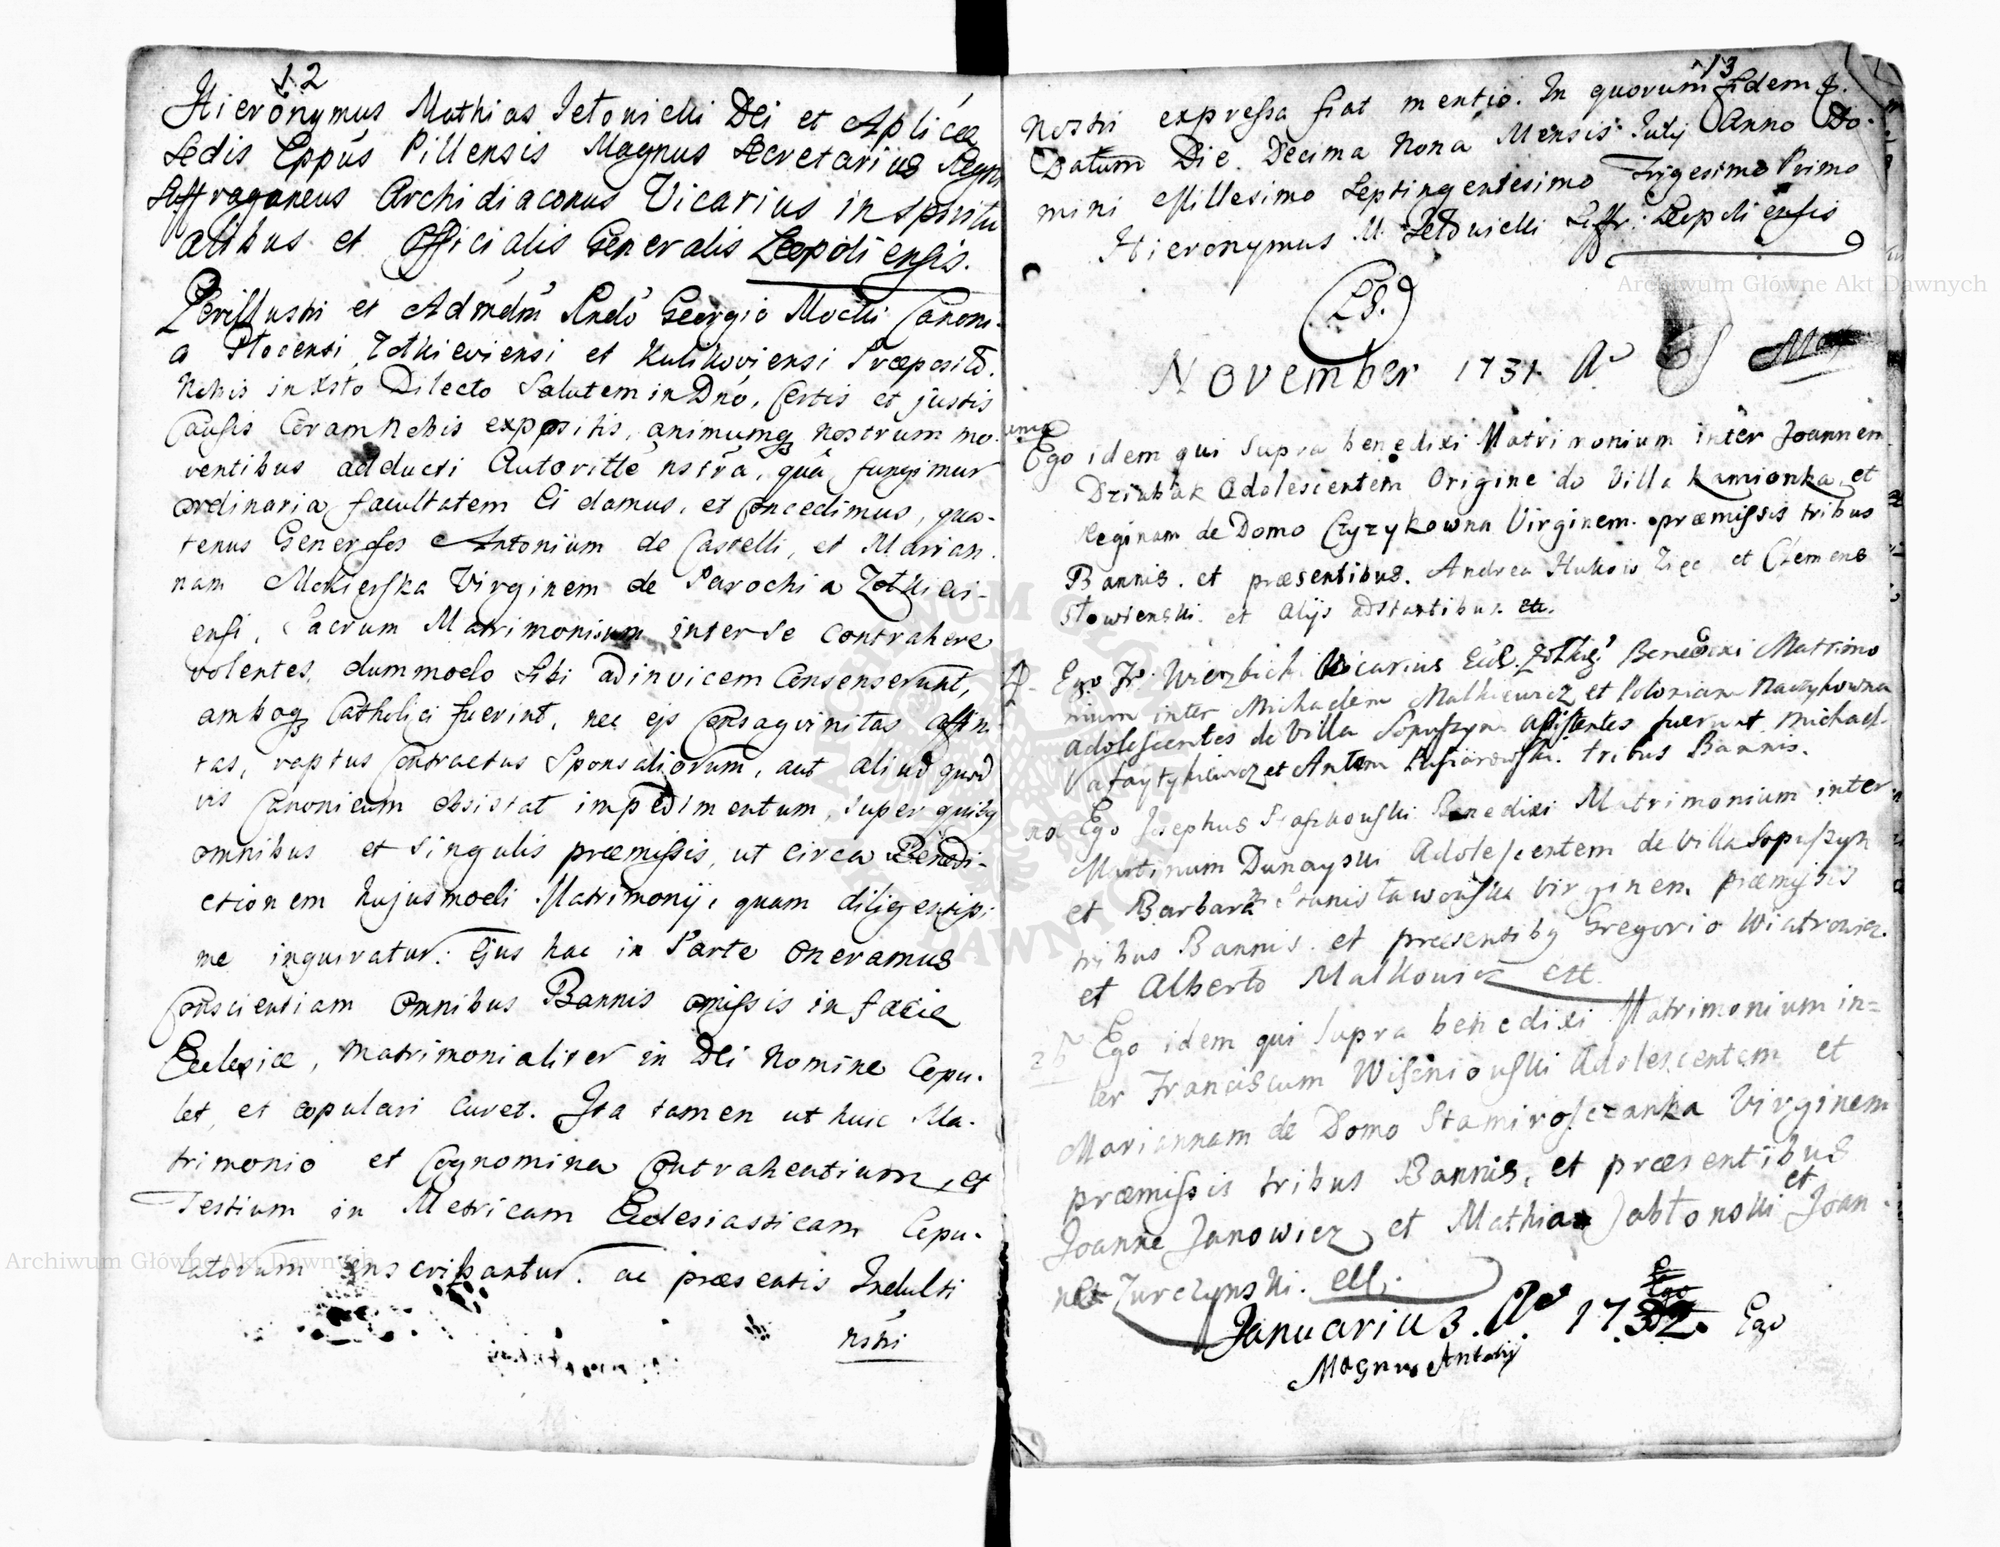 12
Hieronymus Mathias Jełowicki Dei et Aplicæ
Sedis Eppus Pillensis Magnus Secretarius Regni
Suffraganeus Archidiaconus Vicarius in Spiritu
alibus et Officialis Generalis Leopoliensis.
Perillustri et Admdm Rndo Georgio Mocki Canoni-
co Płocensi, Zołkieviensi et Kulikoviensi Præposito.
Nobis in Xsto Dilecto Salutem in Dno. Certis et justis
Causis Coram Nobis exppositis, animumq nostrum mo-
ventibus adducti Autoritte nstra, quâ fungimur
ordinaria facultatem Ei damus, et Concedimus, qua-
tenus Generosos Antonium de Castelli, et Marian
nam Mokierska Virginem de Parochia Zołkievi-
ensi, Sacrum Matrimonium inter se contrahere
volentes, dummodo Sibi ad invicem Consenserunt,
amboq Catholici fuerint, nec ejs Consagvinitas affini
tas, raptus Contractus Sponsaliorum, aut aliud quod
vis Canonicum obsistat impedimentum, super quibq
omnibus et singulis præmissis, ut circa Benedi-
ctionem hujusmodi Matrimonij, quam diligentissi
me inquiratur: Ejus hac in Parte oneramus
Conscientiam omnibus Bannis omissis in facie
Eclesiæ, matrimonialiter in Dei Nomine Copu-
let, et copulari curet. Ita tamen ut huic Ma-
trimonio et Cognomina Contrahentium, et
Testium in Metricam Eclesiasticam Copu-
latorum inscribantur: ac præsentis Indulti
nstri
13
Nostri expressa fiat mentio. In quorum fidem
Datum Die Decima Nona Mensis July Anno Do-
mini Millesimo Septingentesimo Trigesimo Primo
Hieronymus M. Jełowicki Suffr: Leopoliensis
(LS.)
November 1731 A
Ego idem qui supra benedixi Matrimonium inter Joannem
Dziubak Adolescentem Origine do Villa Kamionka, et
Reginam de Domo Czyzykowna Virginem præmissis tribus
Bannis. et præsentibus. Andrea Zięc et Clemens
Słowienski. et alijs adstantibus. etc.
Ego Fr: Wierzbicki Vicarius Ecl. Zołkie: Benedixi Matrimo
nium inter Michaelem Malkiewicz et Poloniam Naczykowna
adolescentes de Villa Sopuszyn assistentes fuerunt Michael
et Antoni tribus Bannis.
Ego Josephus Benedixi Matrimonium inter
Martinum Dunayski Adolescentem de Villa Sopuszyn
et Barbaram Stanisławowska Virginem præmissis
tribus Bannis. et præsentibq Gregorio Wiatrowicz
et Alberto Malkowicz etc.
25 Ego idem qui supra benedixi Matrimonium in=
ter Franciscum Wiszniouski Adolescentem et
Mariannam de Domo Stamirosczanka Virginem
præmissis tribus Bannis, et præsentibus
Joanne Janowicz et Mathia Jabłonski et Joan
nes Zurczynski. etc.
Januarius. A 1732. Ego
Magnus Antonij